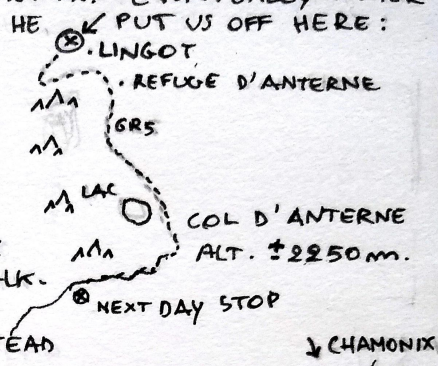 HE ↙ PUT US OFF HERE:
LINGOT
REFUGE D'ANTERNE
GR5
LAC
COL D'ANTERNE
ALT. ±2250m.
NEXT DAY STOP
↓ CHAMONIX